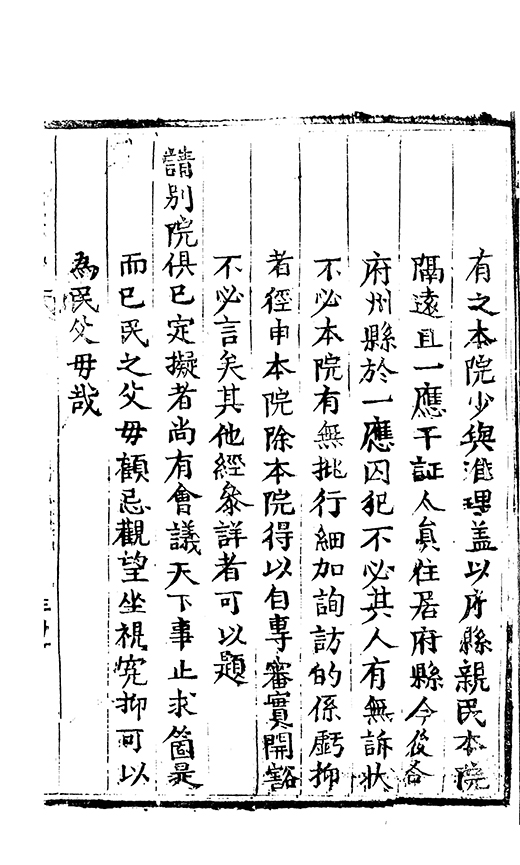 有之本院少與准理盖以府縣親民本院
隔遠且一應干証人員住居府縣今後各
府州縣於一應囚犯不必其人有無訴狀
不必本院有無批行細加詢訪的係虧抑
者徑申本院除本院得以自專審實開豁
不必言矣其他經叅詳者可以題
請別院俱已定擬者尚有會議天下事止求箇是
而已民之父毋顧忌觀望坐視寃抑可以
為民父毋哉